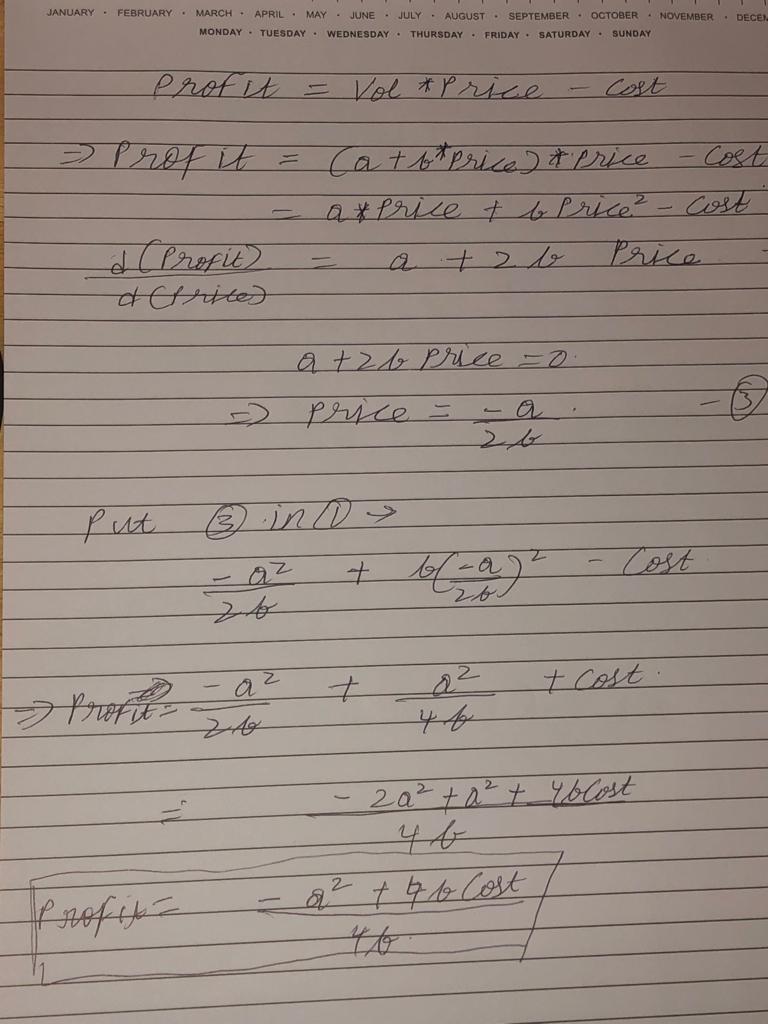 JANUARY · FEBRUARY · MARCH · APRIL · MAY · JUNE · JULY · AUGUST · SEPTEMBER · OCTOBER · NOVEMBER · DECEM
MONDAY · TUESDAY · WEDNESDAY · THURSDAY · FRIDAY · SATURDAY · SUNDAY
Profit = Vol * Price - Cost
⇒ Profit = (a + b*Price) * Price - Cost
= a*Price + b Price² - Cost
d(Profit)/d(Price) = a + 2b Price -
a + 2b Price = 0.
⇒ Price = -a/2b . - ③
Put ③ in ① →
-a²/2b + b(-a/2b)² - Cost
⇒ Profit = -a²/2b + a²/4b + Cost.
= (-2a² + a² + 4bCost)/4b
Profit = (-a² + 4b Cost)/4b.